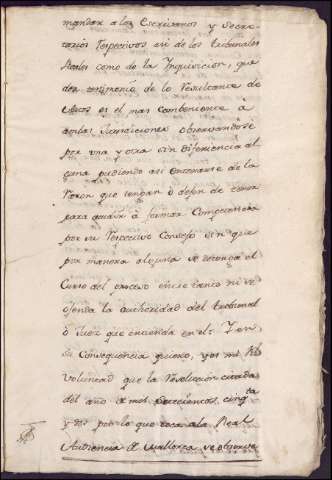 mandar a los Escrivanos y Secre-
tarios respectivos asi de los tribunales
Reales como de la Inquisicion, que
den testimonio de lo resultante de
Autos es el mas combeniente à
ambas Jurisdiciones observandose
por una y otra sin diferiencia al
guna pudiendo asi enterarse de la
razon que tengan ò dejen de tener
para acudir à formar Competencia
por su respectivo Consejo sin que
por manera alguna se detenga el
Curso del proceso ni se
ofenda la authoridad del tribunal
ò Juez que entienda en el: Y en
su Consequencia quiero, y es mi Rl
voluntad que la resolucion citada
del año de mil setecientos, cinqta
y dos por lo que toca à la Real
Audiencia de Mallorca se observe